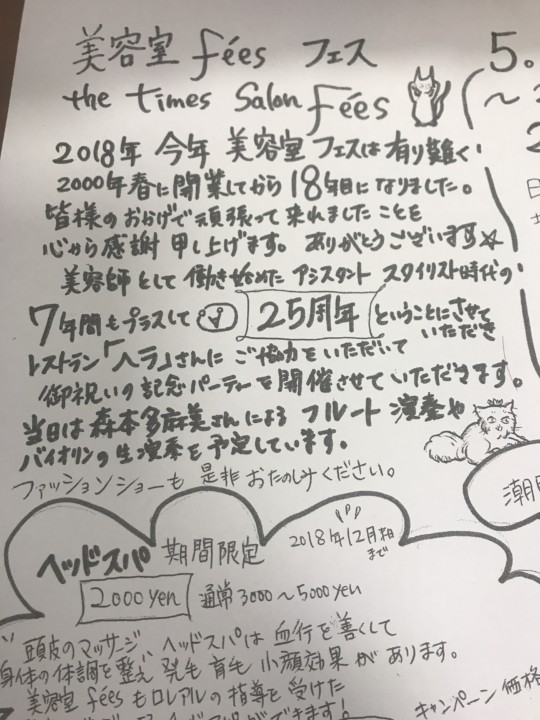 美容室 fées フェス
the times Salon Fées
2018年 今年 美容室 フェスは有り難く
2000年春に開業してから18年目になりました。
皆様のおかげで頑張って来れましたことを
心から感謝 申し上げます。ありがとうございます☆
美容師として 働き始めた アシスタント スタイリスト時代の
7年間もプラスして 25周年 ということにさせて
いただき
レストラン「ヘラ」さんに ご協力をいただいて
御祝いの記念パーティーを開催させていただきます。
当日は 森本多麻美さんによる フルート 演奏や
バイオリンの生演奏を予定しています。
ファッションショーも 是非 おたのしみください。
ヘッドスパ 期間限定 2018年12月
まで
2000yen 通常3000〜5000yen
頭皮のマッサージ、ヘッドスパは 血行を善くして
身体の体調を整え 発毛 育毛 小顔効果 があります。
美容室 fées もロレアルの指導を受けた
キャンペーン価格
5.
潮